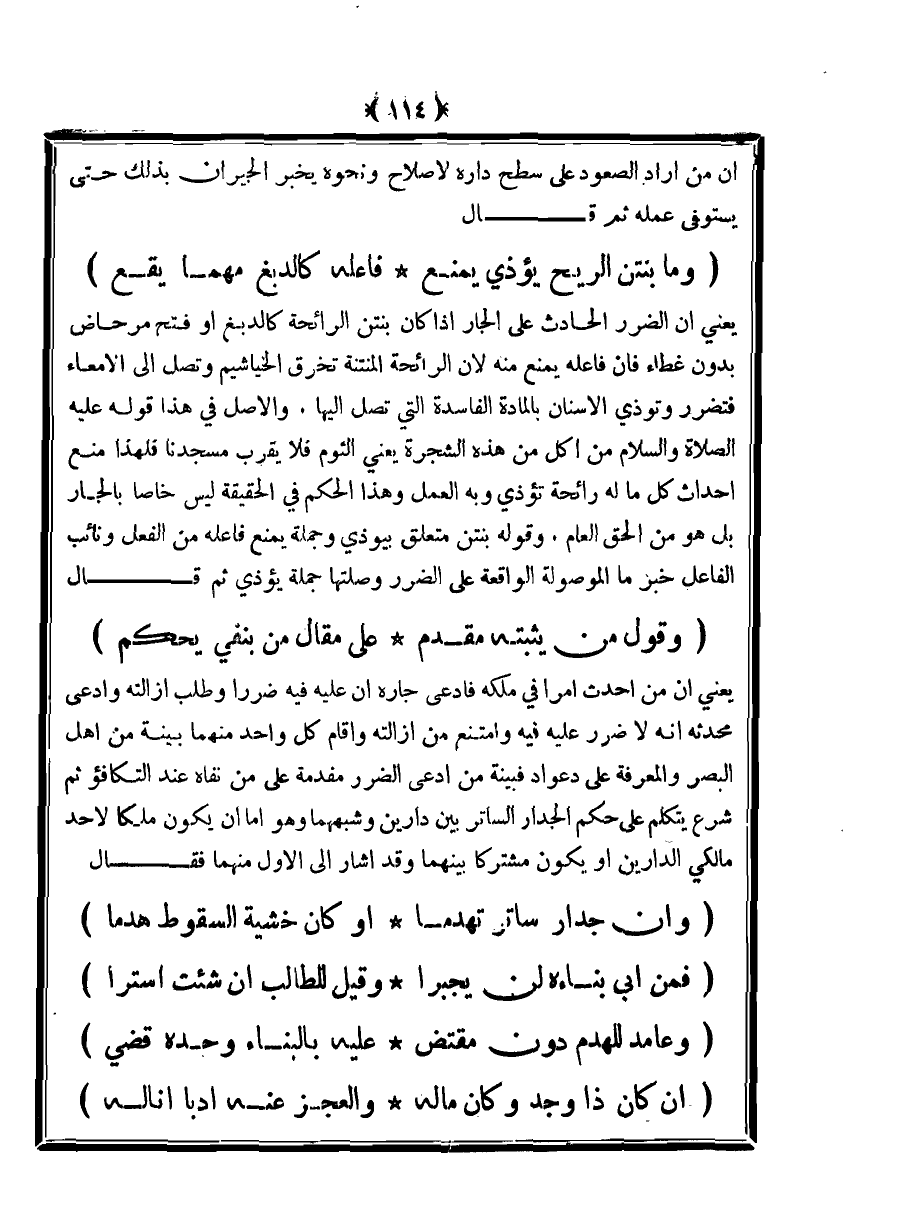 ﴿ ١١٤ ﴾
ان من اراد الصعود على سطح داره لاصلاح ونحوه يخبر الجيران بذلك حتى
يستوفى عمله ثم قال
( وما بنتن الريح يؤذي يمنع * فاعله كالدبغ مهما يقع )
يعني ان الضرر الحادث على الجار اذا كان بنتن الرائحة كالدبغ او فتح مرحاض
بدون غطاء فان فاعله يمنع منه لان الرائحة المنتنة تخرق الخياشيم وتصل الى الامعاء
فتضرر وتوذي الاسنان بالمادة الفاسدة التي تصل اليها ، والاصل في هذا قوله عليه
الصلاة والسلام من اكل من هذه الشجرة يعني الثوم فلا يقرب مسجدنا فلهذا منع
احداث كل ما له رائحة تؤذي وبه العمل وهذا الحكم في الحقيقة ليس خاصا بالجار
بل هو من الحق العام ، وقوله بنتن متعلق بيوذي وجملة يمنع فاعله من الفعل ونائب
الفاعل خبز ما الموصولة الواقعة على الضرر وصلتها جملة يؤذي ثم قال
( وقول من يثبته مقدم * على مقال من بنفي يحكم )
يعني ان من احدث امرا في ملكه فادعى جاره ان عليه فيه ضررا وطلب ازالته وادعى
محدثه انه لا ضرر عليه فيه وامتنع من ازالته واقام كل واحد منهما بينة من اهل
البصر والمعرفة على دعواد فبينة من ادعى الضرر مقدمة على من نفاه عند التكافؤ ثم
شرع يتكلم على حكم الجدار الساتر بين دارين وشبههما وهو اما ان يكون ملكا لاحد
مالكي الدارين او يكون مشتركا بينهما وقد اشار الى الاول منهما فقال
( وان جدار ساتر تهدما * او كان خشية السقوط هدما )
( فمن ابى بناءه لن يجبرا * وقيل للطالب ان شئت استرا )
( وعامد للهدم دون مقتض * عليه بالبناء وحده قضي )
( ان كان ذا وجد وكان ماله * والعجز عنه ادبا اناله )